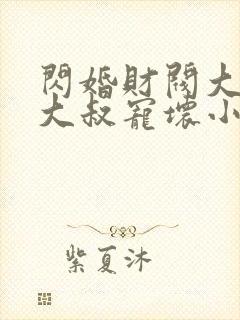 閃婚財閥大
大叔寵壞小
紫夏沐